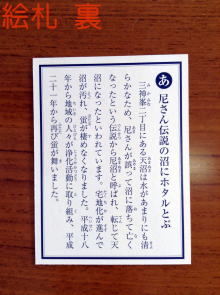 絵札 裏
あ 尼さん伝説の沼にホタルとぶ
三神峯二丁目にある天沼は水があまりにも清
らかなため、尼さんが誤って沼に落ちて亡く
なったという伝説から尼沼と呼ばれ、転じて天
沼になったといわれています。宅地化が進んで
沼が汚れ、蛍が棲めなくなりました。平成十八
年から地域の人々が浄化活動に取り組み、平成
二十一年から再び蛍が舞いました。